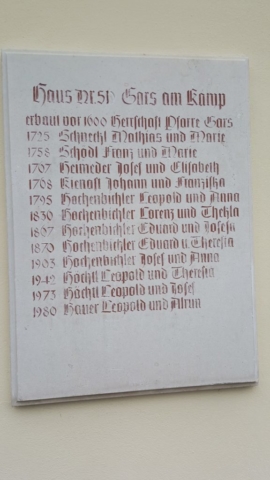 Haus Nr.51 Gars am Kamp
erbaut vor 1600 Herrschaft Pfarre Gars
1725 Schneckl Mathias und Marie
1758 Schödl Franz und Marie
1767 Heimeder Josef und Elisabeth
1768 Kienast Johann und Franziska
1795 Hochenbichler Leopold und Anna
1830 Hochenbichler Lorenz und Thekla
1867 Hochenbichler Eduard und Josefa
1870 Hochenbichler Eduard u. Theresia
1903 Hochenbichler Josef und Anna
1942 Höchtl Leopold und Theresia
1973 Höchtl Leopold und Josef
1980 Hauer Leopold und Alrun